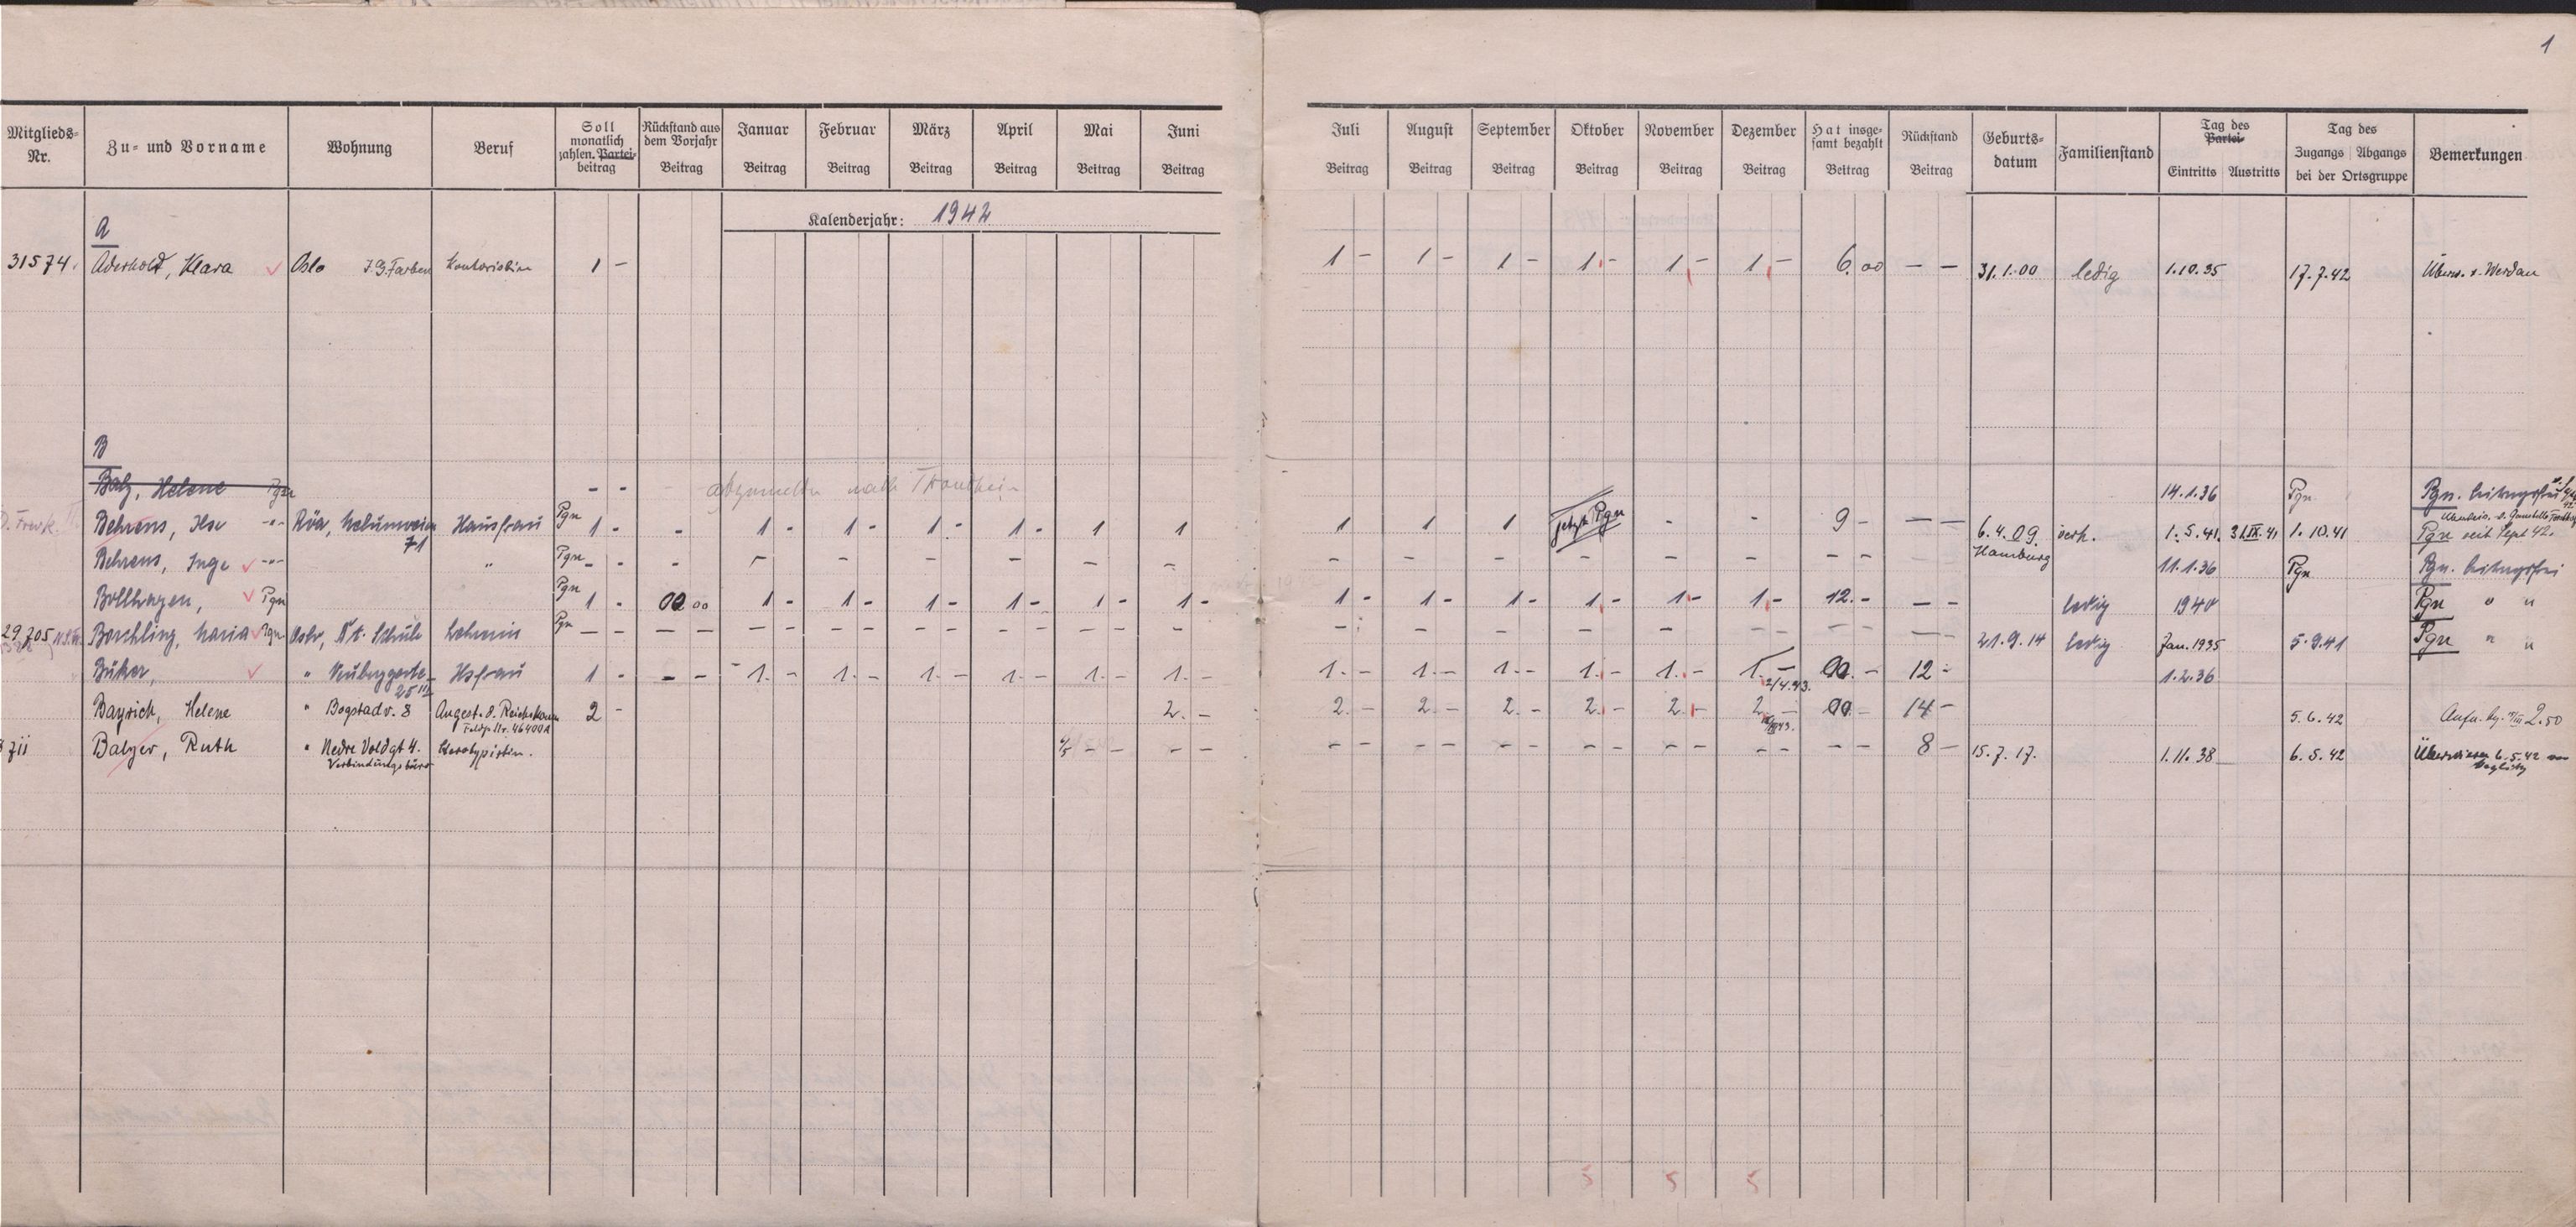 1
Mitglieds-Nr. Zu- und Vorname Wohnung Beruf Soll monatlich zahlen. Partei-beitrag Rückstand aus dem Vorjahr Beitrag Januar Beitrag Februar Beitrag März Beitrag April Beitrag Mai Beitrag Juni Beitrag Juli Beitrag August Beitrag September Beitrag Oktober Beitrag November Beitrag Dezember Beitrag Hat insge-samt bezahlt Beitrag Rückstand Beitrag Geburts-datum Familienstand Tag des Partei- Eintritts Austritts Tag des Zugangs Abgangs bei der Ortsgruppe Bemerkungen
Kalenderjahr: 1942
A
31574. Aderhold, Klara Oslo I.G. Farben Kontoristin 1 - 1 - 1 - 1 - 1 - 1 - 1 - 6.00 - - 31.1.00 ledig 1.10.35 17.7.42 Überw. v. Werdau
B
Balz, Helene Pgn - - abgemeldet nach Trontheim 14.1.36 Pgn Pgn. beitragsfrei
Behrens, Ilse -"- Röa, 71 Hausfrau Pgn 1 - - 1 - 1 - 1 - 1 - 1 1 1 1 1 jetzt Pgn - - 9 - - - 6.4.09. Hamburg verh. 1.5.41. 31.IX.41 1.10.41 Pgn seit Sept 42.
Behrens, Inge -"- " Pgn - - - - - - - - - - - - - - - - - - 11.1.36 Pgn Pgn. beitragsfrei
Bollhagen, Pgn Pgn 1 - 00.00 1 - 1 - 1 - 1 - 1 - 1 - 1 - 1 - 1 - 1 - 1 - 1 - 12. - - - ledig 1940 Pgn " "
29705 Borchling, Maria Pgn Oslo, Dt. Schule Lehrerin Pgn - - - - - - - - - - - - - - - - - - - - 21.9.14 ledig Jan. 1935 5.9.41 Pgn " "
Büker, " 25 III Hsfrau 1 - - - 1. - 1. - 1. - 1. - 1. - 1. - 1. - 1. - 1. - 1. - 1. - 1. - 2/4.43. 00. - 12 - 1.2.36
Bayrich, Helene " Bogstadv. 8 Angest. d. Reichskomm Feldp. Nr. 46400A 2 - 2. - 2. - 2. - 2. - 2. - 2. - 2. - 00. - 14 - 5.6.42 2.50
Balzer, Ruth " Nedre Voldgt 4. Verbindungsbüro Stenotypistin. - - - - - - - - - - - - - - - - - - 8 - 15.7.17. 1.11.38 6.5.42 Überwiesen 6.5.42
5 5 5